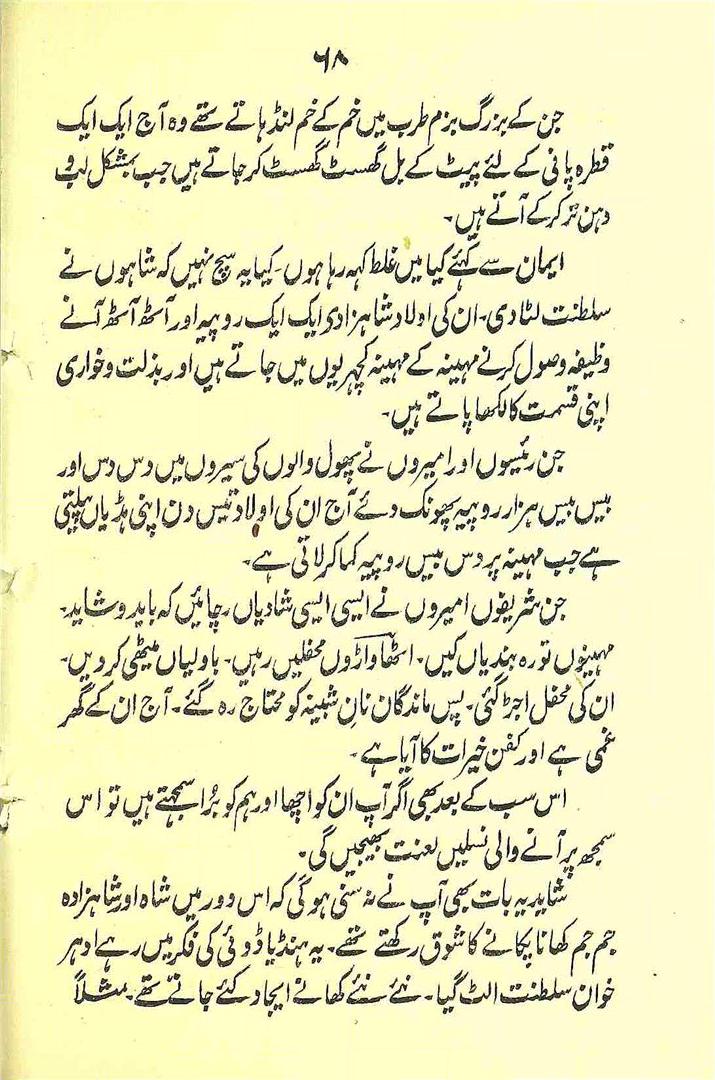 ۶۸
جن کے بزرگ بزم طرب میں خم کے خم لنڈہاتے تھے وہ آج ایک ایک
قطرہ پانی کے لئے پیٹ کے بل گھسٹ گھسٹ کر جاتے ہیں جب بمشکل لب و
دہن تر کر کے آتے ہیں۔
ایمان سے کہئے کیا میں غلط کہہ رہا ہوں۔ کیا یہ سچ نہیں کہ شاہوں نے
سلطنت لٹا دی۔ ان کی اولاد شاہزادی ایک ایک روپیہ اور آٹھ آٹھ آنے
وظیفہ وصول کرنے مہینہ کے مہینہ کچہریوں میں جاتے ہیں اور بذلت و خواری
اپنی قسمت کا لکھا پاتے ہیں۔
جن رئیسوں اور امیروں نے پھول والوں کی سیروں میں دس دس اور
بیس بیس ہزار روپیہ پھونک دئے آج ان کی اولاد تیس دن اپنی ہڈیاں پیلتی
ہے جب مہینہ پر دس بیس روپیہ کما کر لاتی ہے۔
جن شریفوں امیروں نے ایسی ایسی شادیاں رچائیں کہ باید و شاید۔
مہینوں تورہ بندیاں کیں۔ اٹھاواڑوں محفلیں رہیں۔ باولیاں میٹھی کر دیں۔
ان کی محفل اجڑ گئی۔ پس ماندگان نانِ شبینہ کو محتاج رہ گئے۔ آج ان کے گھر
غمی ہے اور کفن خیرات کا آیا ہے۔
اس سب کے بعد بھی اگر آپ ان کو اچھا اور ہم کو بُرا سمجہتے ہیں تو اس
سمجھ پر آنے والی نسلیں لعنت بھیجیں گی۔
شاید یہ بات بھی آپ نے نہ سنی ہو گی کہ اس دور میں شاہ اور شاہزادہ
جم جم کھانا پکانے کا شوق رکھتے تھے۔ یہ ہنڈیا ڈوئی کی فکر میں رہے ادہر
خوان سلطنت الٹ گیا۔ نئے نئے کھانے ایجاد کئے جاتے تھے۔ مثلاً